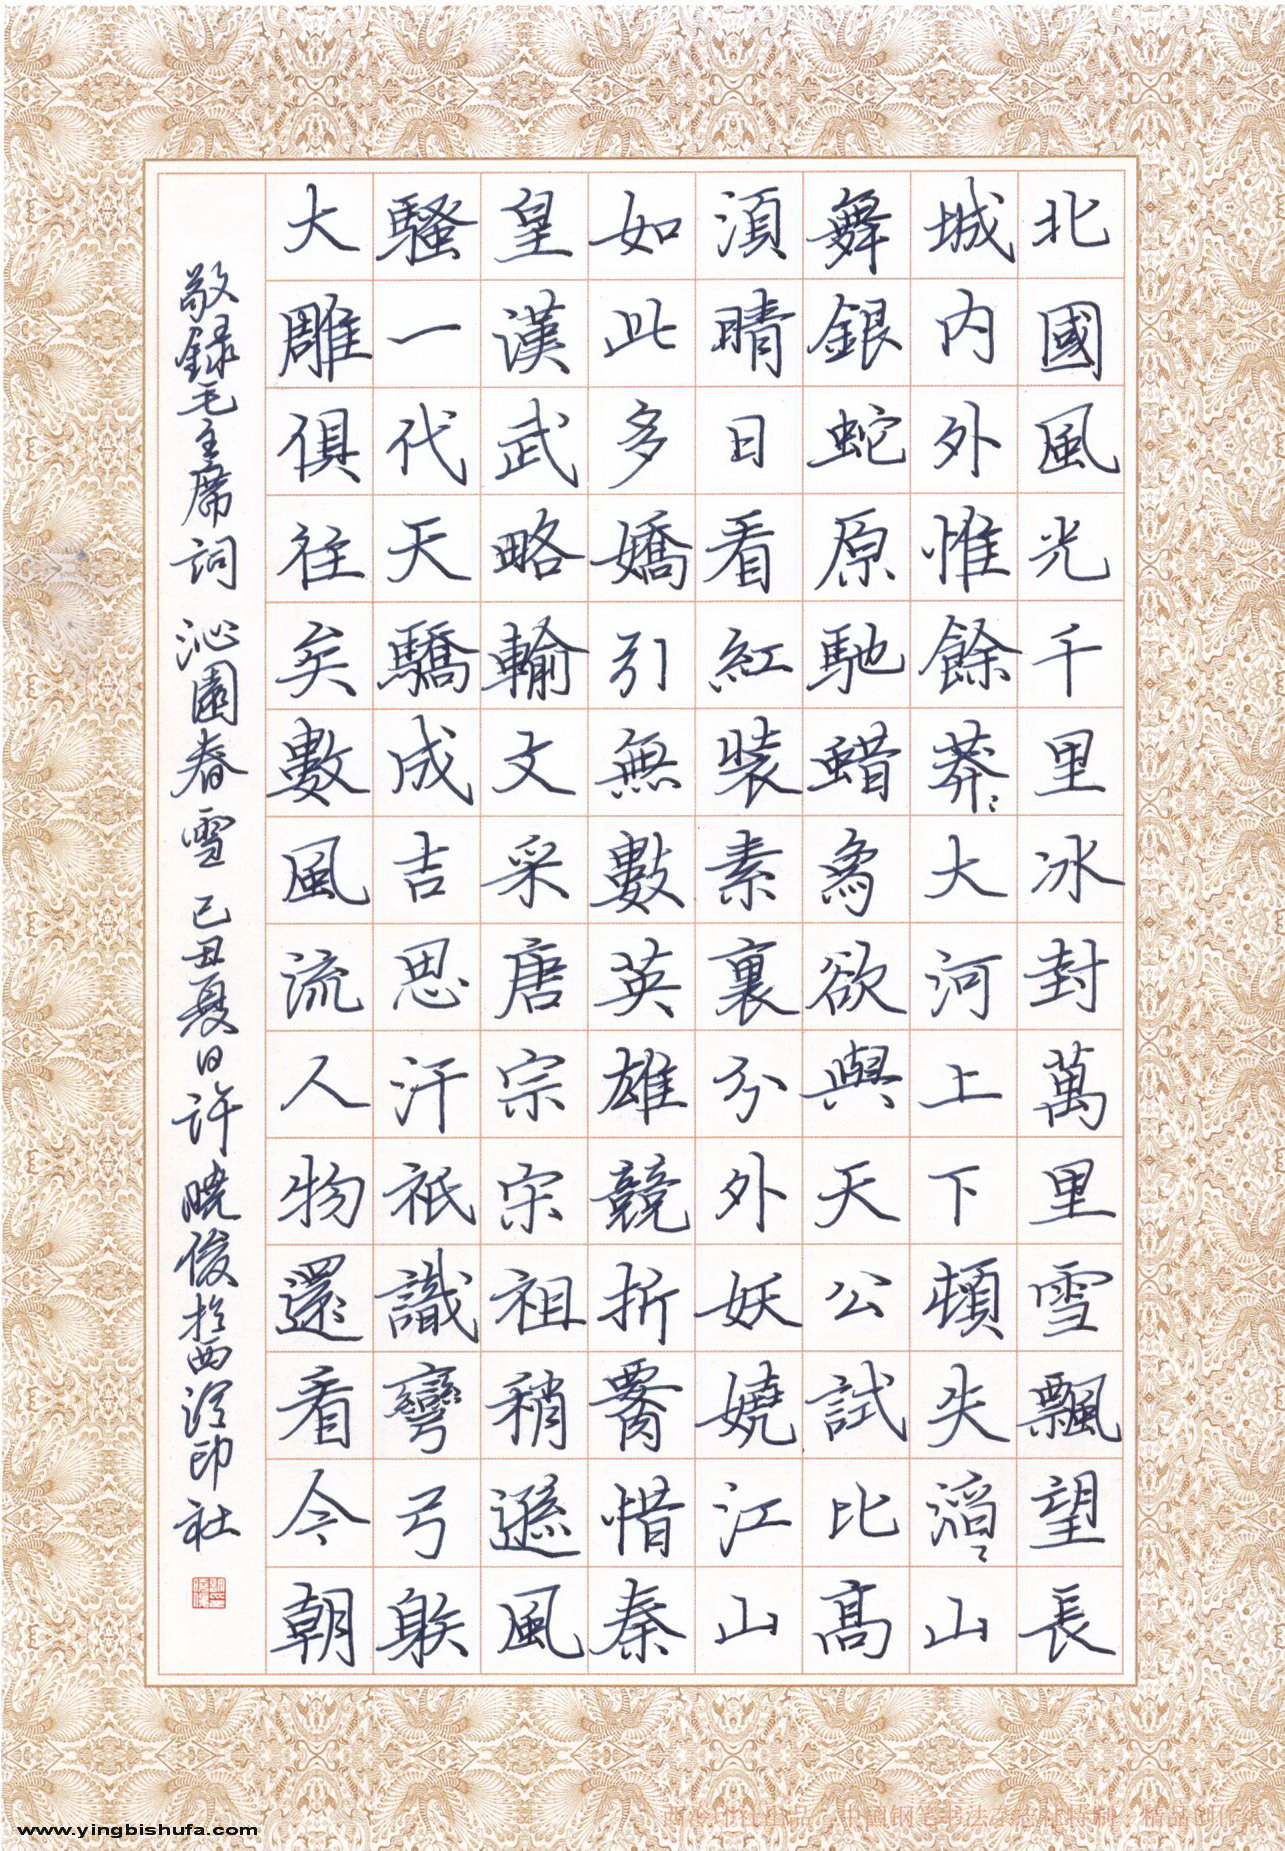 北國風光千里冰封萬里雪飄望長
城内外惟餘莽〻大河上下頓失滔〻山
舞銀蛇原馳蜡象欲與天公試比高
須晴日看紅裝素裹分外妖嬈江山
如此多嬌引無數英雄競折腰惜秦
皇漢武略輸文采唐宗宋祖稍遜風
騷一代天驕成吉思汗衹識彎弓䠶
大雕俱往矣數風流人物還看今朝
敬録毛主席詞 沁園春 雪 己丑夏日許曉俊於西泠印社
www.yingbishufa.com